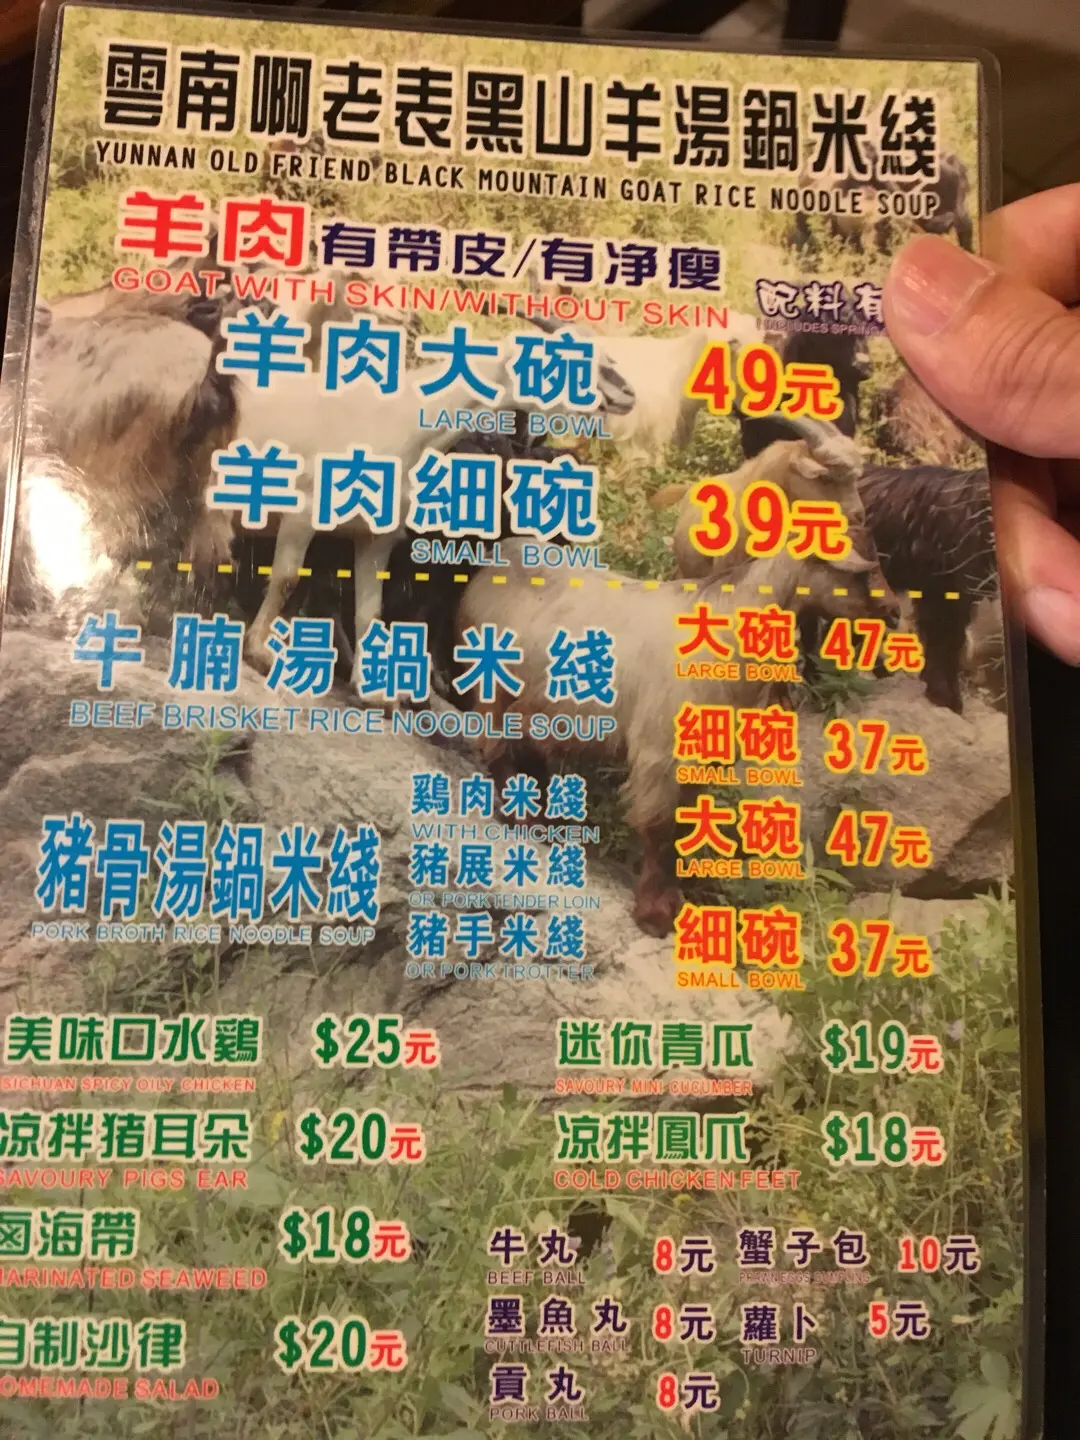 雲南啊老表黑山羊湯鍋米綫
YUNNAN OLD FRIEND BLACK MOUNTAIN GOAT RICE NOODLE SOUP
羊肉 有帶皮/有净瘦
GOAT WITH SKIN/WITHOUT SKIN
配料有
INCLUDES SPRING
羊肉大碗 49元
LARGE BOWL
羊肉細碗 39元
SMALL BOWL
牛腩湯鍋米綫
BEEF BRISKET RICE NOODLE SOUP
大碗 47元
LARGE BOWL
細碗 37元
SMALL BOWL
豬骨湯鍋米綫
PORK BROTH RICE NOODLE SOUP
鷄肉米綫
WITH CHICKEN
豬展米綫
OR PORK TENDER LOIN
豬手米綫
OR PORK TROTTER
大碗 47元
LARGE BOWL
細碗 37元
SMALL BOWL
美味口水鷄 $25元
SICHUAN SPICY OILY CHICKEN
凉拌猪耳朵 $20元
SAVOURY PIGS EAR
鹵海帶 $18元
MARINATED SEAWEED
自制沙律 $20元
OMEMADE SALAD
迷你青瓜 $19元
SAVOURY MINI CUCUMBER
凉拌鳳爪 $18元
COLD CHICKEN FEET
牛丸 8元
BEEF BALL
墨魚丸 8元
CUTTLEFISH BALL
貢丸 8元
PORK BALL
蟹子包 10元
蘿卜 5元
TURNIP